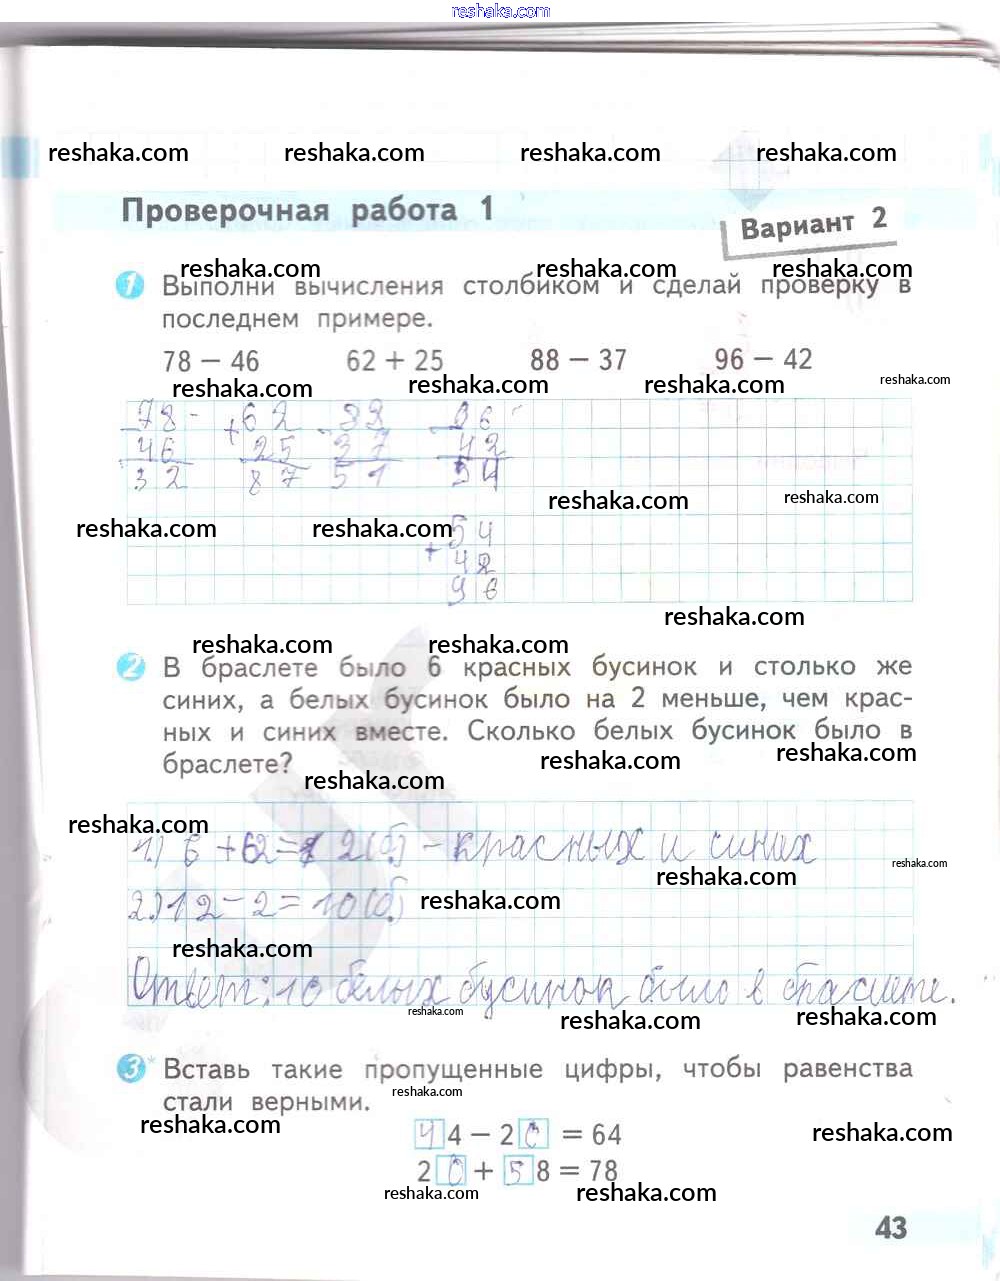 reshaka.com
reshaka.com reshaka.com reshaka.com reshaka.com
Проверочная работа 1
Вариант 2
reshaka.com reshaka.com reshaka.com
1 Выполни вычисления столбиком и сделай проверку в
последнем примере.
78 − 46 62 + 25 88 − 37 96 − 42
reshaka.com reshaka.com reshaka.com reshaka.com
78 + 62 88 96
46 25 37 42
32 87 51 54
reshaka.com reshaka.com
reshaka.com reshaka.com
54
+ 42
96
reshaka.com
reshaka.com reshaka.com
2 В браслете было 6 красных бусинок и столько же
синих, а белых бусинок было на 2 меньше, чем крас-
ных и синих вместе. Сколько белых бусинок было в
браслете?
reshaka.com reshaka.com
reshaka.com
reshaka.com
1.) 6 + 6 = 12 (б) - красных и синих
reshaka.com
reshaka.com
2.) 12 - 2 = 10 (б)
reshaka.com
reshaka.com
Ответ: 10 белых бусинок было в браслете.
reshaka.com
reshaka.com reshaka.com
3* Вставь такие пропущенные цифры, чтобы равенства
стали верными.
reshaka.com
reshaka.com reshaka.com
4 − 2 0 = 64
2 0 + 5 8 = 78
reshaka.com reshaka.com
43